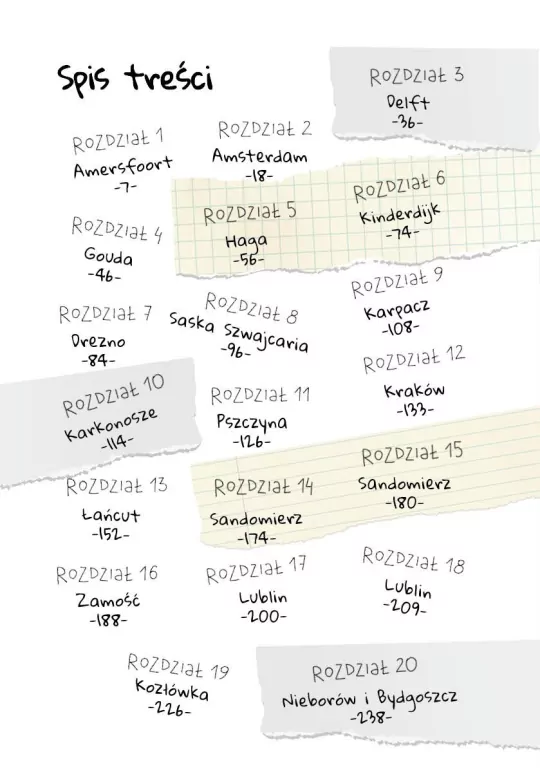 Spis treści
ROZDZIAŁ 1
Amersfoort
-7-
ROZDZIAŁ 2
Amsterdam
-18-
ROZDZIAŁ 3
Delft
-36-
ROZDZIAŁ 4
Gouda
-46-
ROZDZIAŁ 5
Haga
-56-
ROZDZIAŁ 6
Kinderdijk
-74-
ROZDZIAŁ 7
Drezno
-84-
ROZDZIAŁ 8
Saska Szwajcaria
-96-
ROZDZIAŁ 9
Karpacz
-108-
ROZDZIAŁ 10
Karkonosze
-114-
ROZDZIAŁ 11
Pszczyna
-126-
ROZDZIAŁ 12
Kraków
-133-
ROZDZIAŁ 13
Łańcut
-152-
ROZDZIAŁ 14
Sandomierz
-174-
ROZDZIAŁ 15
Sandomierz
-180-
ROZDZIAŁ 16
Zamość
-188-
ROZDZIAŁ 17
Lublin
-200-
ROZDZIAŁ 18
Lublin
-209-
ROZDZIAŁ 19
Kozłówka
-226-
ROZDZIAŁ 20
Nieborów i Bydgoszcz
-238-